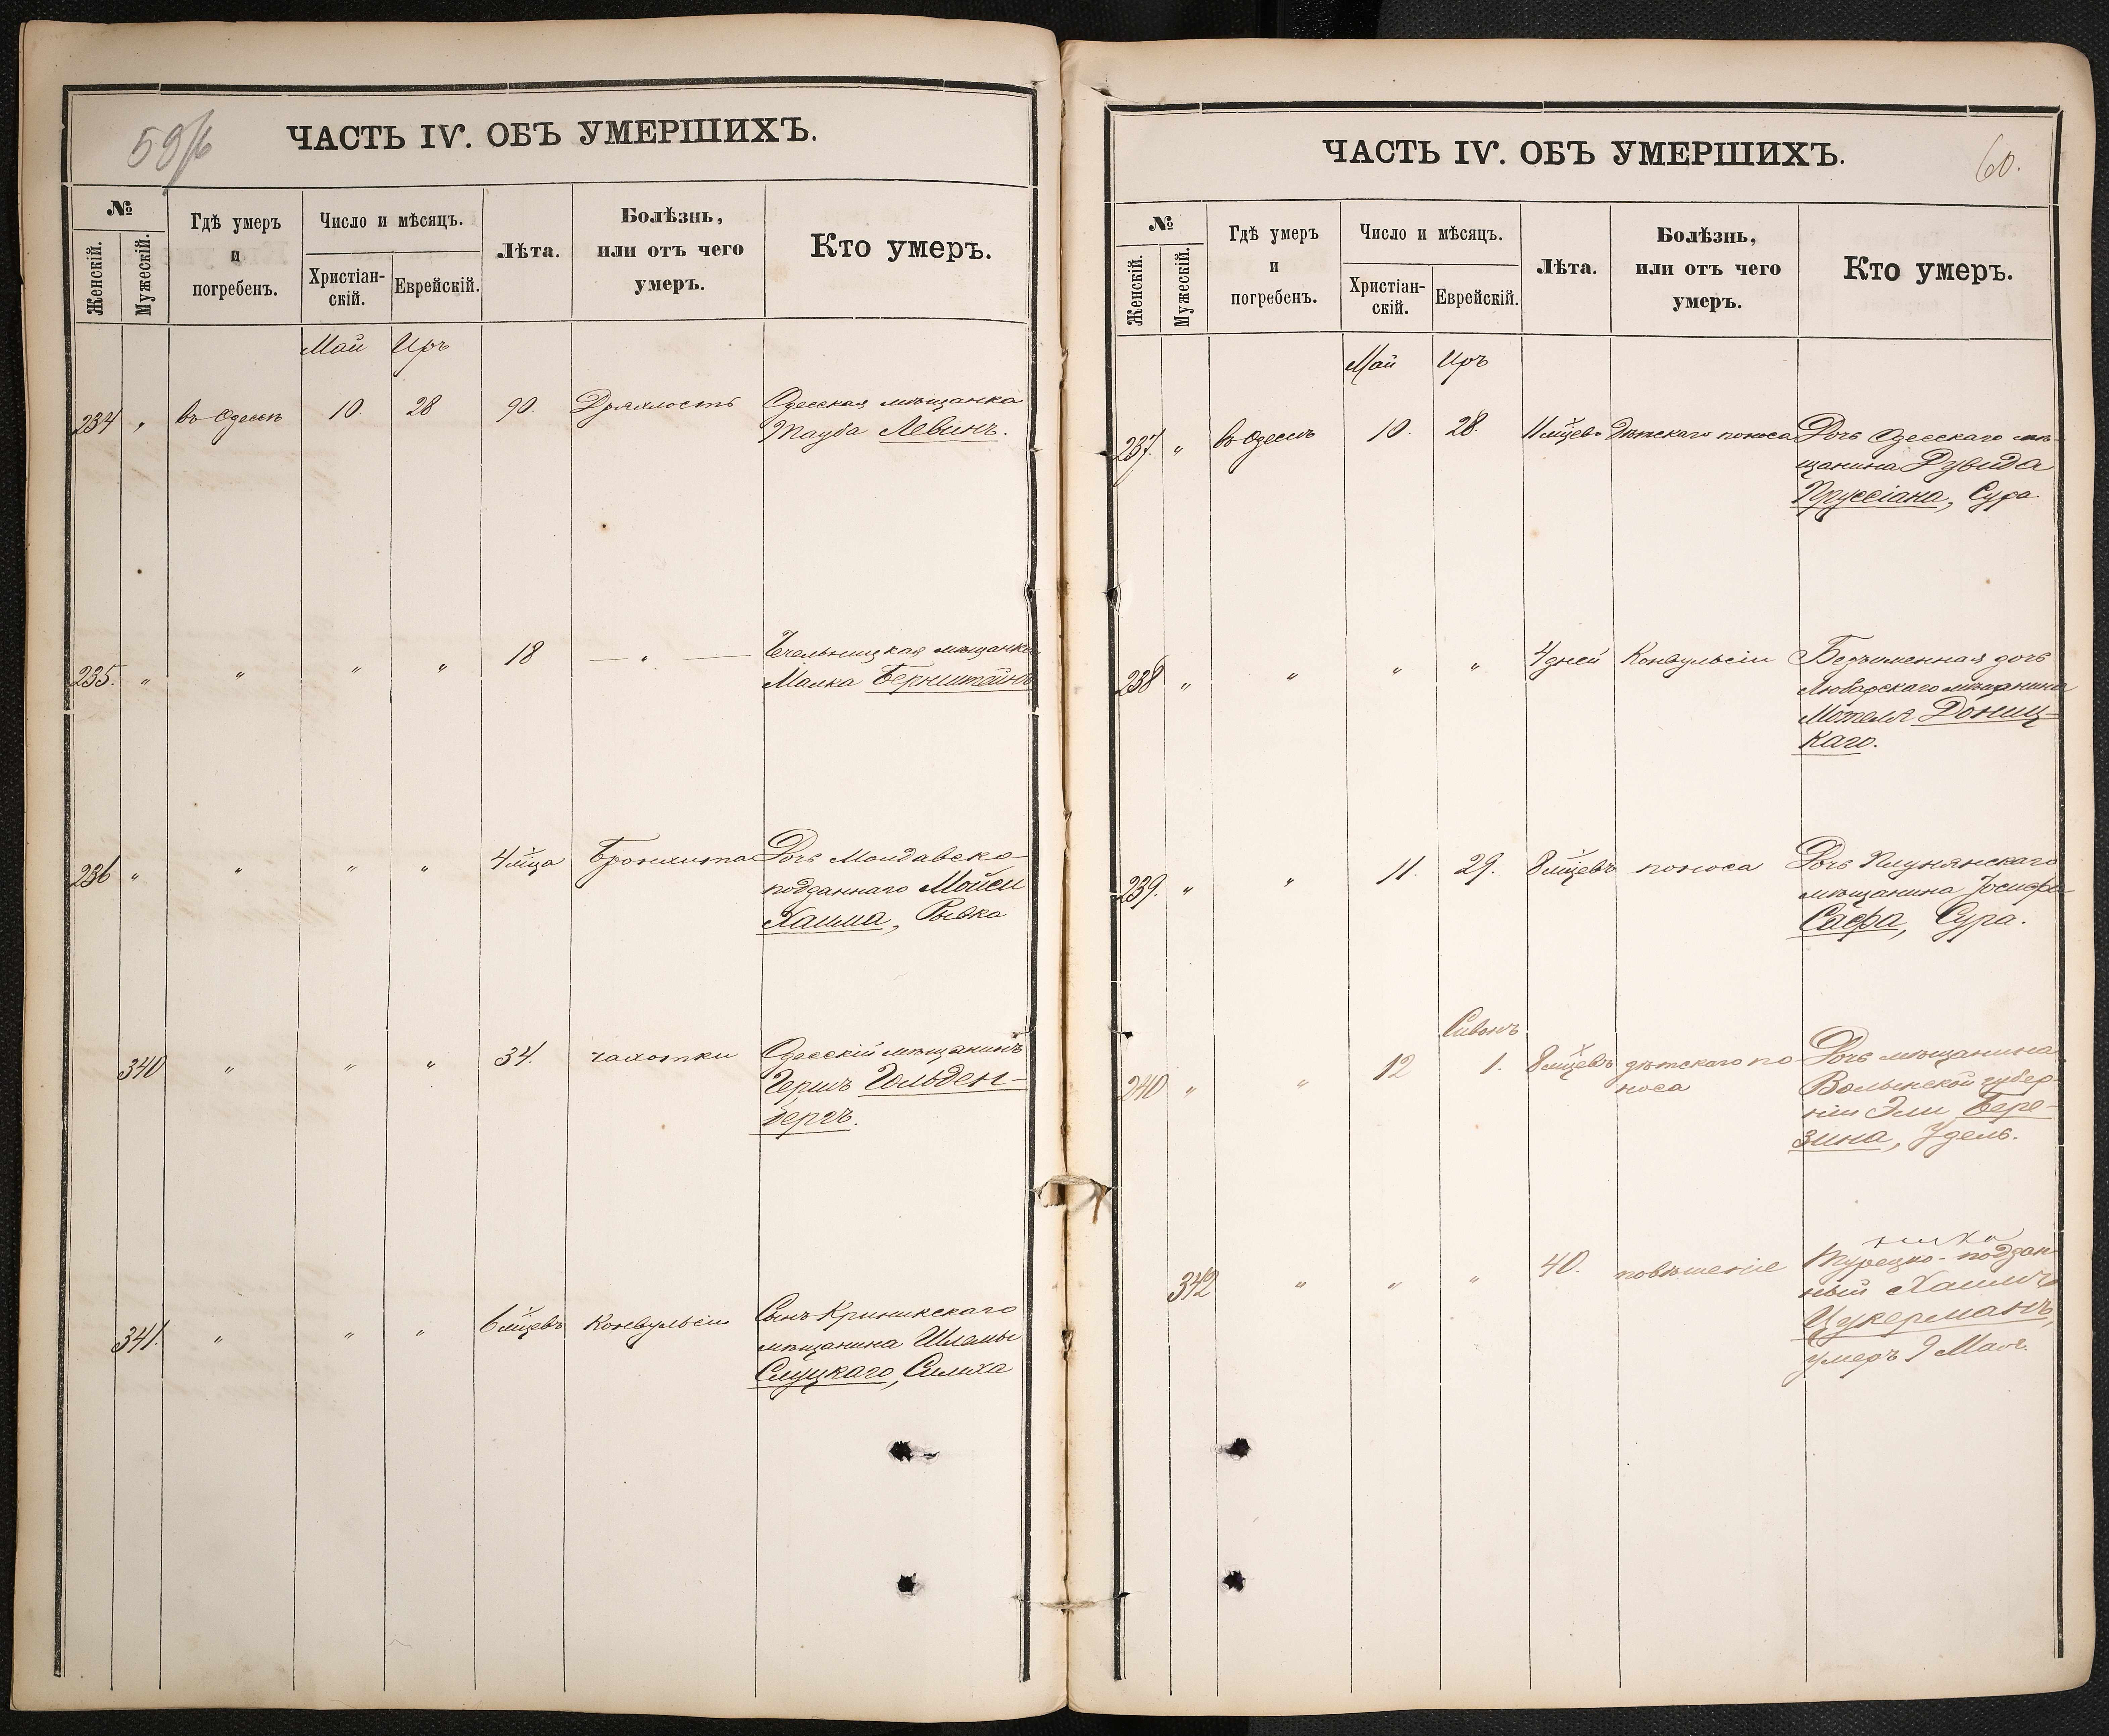 59/б
ЧАСТЬ IV. ОБЪ УМЕРШИХЪ.
№
Женскій.
Мужескій.
Гдѣ умеръ
и
погребенъ.
Число и мѣсяцъ.
Христіан-
скій.
Еврейскій.
Лѣта.
Болѣзнь,
или отъ чего
умеръ.
Кто умеръ.
Май Иръ
234 " въ Одессѣ 10. 28 90. Дряхлость Одесская мѣщанка
Тауба Левинъ.
235. " " " " 18 — " — мѣщанка
Малка Бернштейнъ
236 " " " " 4 м̆ца Бронхита Дочь Молдавско-
подданнаго Мойси
Хаима, Рывка
340 " " " 34. чахотки Одесскій мѣщанинъ
Гершъ Гольден-
бергъ.
341. " " " 6 м̆цевъ Конвульсіи Сынъ Кринкскаго
мѣщанина Шлемы
Слуцкаго, Симха
60.
ЧАСТЬ IV. ОБЪ УМЕРШИХЪ.
№
Женскій.
Мужескій.
Гдѣ умеръ
и
погребенъ.
Число и мѣсяцъ.
Христіан-
скій.
Еврейскій.
Лѣта.
Болѣзнь,
или отъ чего
умеръ.
Кто умеръ.
Май Иръ
237. " въ Одессѣ 10. 28. 11 м̆цевъ Дѣтскаго поноса Дочь Одесскаго мѣ-
щанина Дувида
Пруссіана, Сура.
238 " " " " 4 дней Конвульсіи Безъименная дочь
Любарскаго мѣщанина
Мотеля Дониц-
каго.
239. " " 11. 29. 8 м̆цевъ поноса Дочь мѣщанина Іосифа
Сафа, Сура.
Сивонъ
240 " " 12 1. 8 м̆цевъ дѣтскаго по-
носа
Дочь мѣщанина
Волынской губер-
ніи Эли Бере-
зина, Удель.
342 " " " 40. повѣшеніе Турецко-поддан-
ный Хаимъ
Цукерманъ,
умеръ 9 Мая.